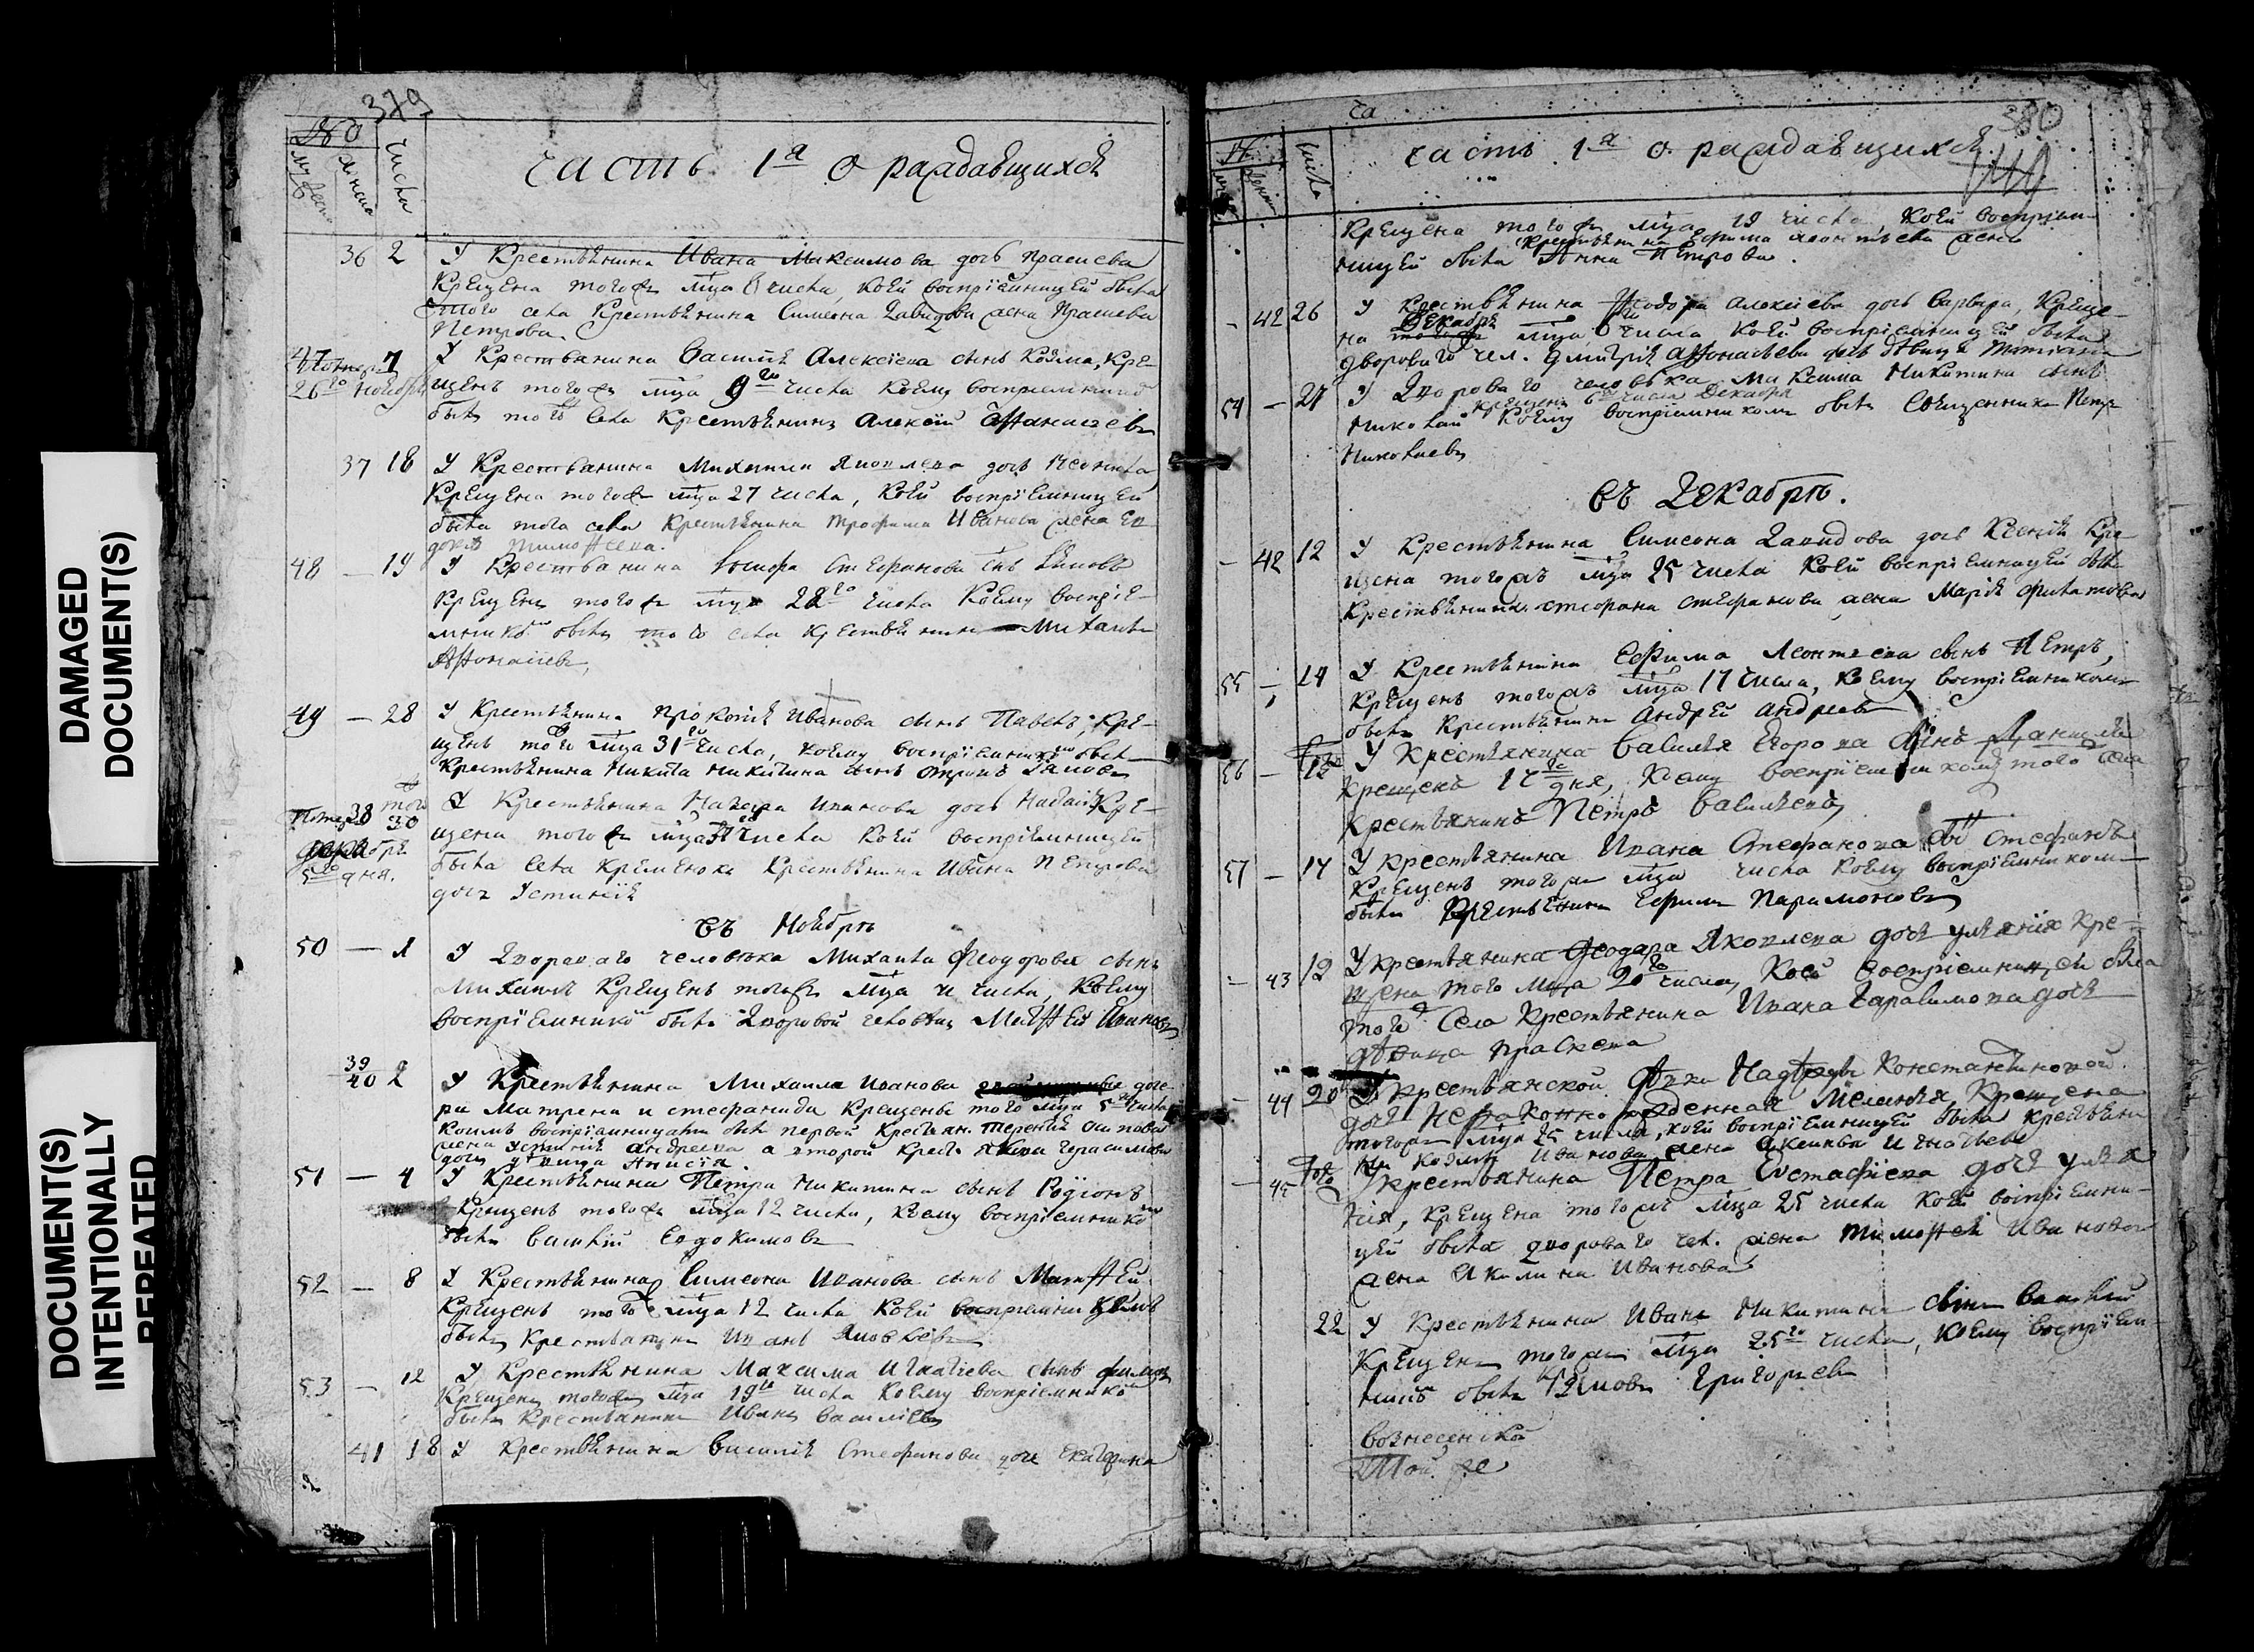 DAMAGED
DOCUMENT(S)
DOCUMENT(S)
INTENTIONALLY
REPEATED
379
№
числа
часть 1я о раждавщихся
36 2 У Крестьянина Ивана Максимова дочь
Крещена того ж мца числа, коей воспріемницей была
того села Крестьянина Симеона Давидова жена
Петрова
47 7 У Крестьянина Василія Алексіева сынъ Козма, Кре-
26го ноября щенъ того ж мца 9го числа коему воспріемникомъ
былъ того села Крестьянинъ Алексій Афонасіевъ
37 18 У Крестьянина Михаила Яковлева дочь
Крещена того ж мца 27 числа, коей воспріемницей
была того села Крестьянина Трофима Иванова жена Ев-
докія Тимофеева.
48 — 19 У Крестьянина Іосифа Стефанова снъ Іаковъ
Крещенъ того ж мца 22го числа коему воспріе-
мникомъ былъ того села крестьянинъ Михаилъ
Афонасіевъ,
49 — 28 У Крестьянина Прокопія Иванова сынъ Павелъ, Кре-
щенъ того мца 31го числа, коему воспріемникомъ былъ
Крестьянина Никита Никитина сынъ отрокъ Іаковъ
38 30 У Крестьянина Назара Иванова дочь Наталія Кре-
щена того ж мца 31 числа коей воспріемницей
5го дня. была села Кременокъ Крестьянина Ивана Петрова
дочь Устинія
въ Ноябрѣ
50 — 1 У Двороваго человѣка Михаила Феодорова сынъ
Михаилъ Крещенъ того ж мца и числа, коему
воспріемникомъ былъ Дворовой человѣкъ Матфей Ивановъ
39
40 2 У Крестьянина Михаила Иванова доче-
ри Матрена и Стефанида Крещены того мца 5го числа
коимъ воспріемницами были первой Крестьян. Терентія
жена Устинія Андреева а второй Крест. Якова Герасимова
дочь дѣвица Анисія.
51 — 4 У Крестьянина Петра Никитина сынъ Родіонъ
Крещенъ того ж мца 12 числа, коему воспріемникомъ
былъ Василій Евдокимовъ
52 — 8 У Крестьянина Симеона Иванова сынъ Матфей
Крещенъ того ж мца 12 числа коей воспріемникомъ
былъ Крестьянинъ Иванъ Яковлевъ
53 — 12 У Крестьянина Максима Игнатіева сынъ
Крещенъ того ж мца 19го числа коему воспріемникомъ
былъ Крестьянинъ Иванъ Василіевъ
41 18 У Крестьянина Василія Стефанова дочь Екатерина
380
часть 1я о раждавщихся
Крещена того ж мца 19 числа, коей воспріем-
Крестьянина Ефима Леонтьева жена
ницей была Анна Петрова.
42 26 У Крестьянина Феодора Алексіева дочь Варвара, Креще-
Декабря
на мца 6 числа коей воспріемницей была
двороваго чел. Дмитрія Афонасьева дочь дѣвица Татіана
54 — 27 У Двороваго человѣка Максима Никитина сынъ
крещенъ 6 числа Декабря
Николай коему воспріемникомъ былъ Священникъ Петръ
Николаевъ
въ Декабрѣ.
— 42 12 У Крестьянина Симеона Давидова дочь Ксенія Кре-
щена того жъ мца 25 числа коей воспріемницей была
Крестьянина Стефана Стефанова жена Марія Филатова
55 — 14 У Крестьянина Ефима Леонтьева сынъ Петръ,
Крещенъ того жъ мца 17 числа, коему воспріемникомъ
былъ Крестьянинъ Андрей Андреевъ
56 — У Крестьянина Василья Егорова сынъ Даніилъ
крещенъ 17го дня, коему воспріемникомъ того села
крестьянинъ Петръ Васильевъ
57 — 17 У крестьянина Ивана Стефанова сынъ Стефанъ
Крещенъ того ж мца числа коему воспріемникомъ
былъ Крестьянинъ Ефимъ Парамоновъ
— 43 19 У крестьянина Феодора Яковлева дочь Ульянія кре-
щена того мца 20го числа, коей воспріемницей была
того села Крестьянина Ивана Гарасимова дочь
дѣвица Праскева
— 44 20 У крестьянской дѣвки Надежды Константиновой
дочь незаконно рожденная Меланья, Крещена
того ж мца 25 числа, коей воспріемницей была крестьяни-
на Козмы Иванова жена Акилина Игнатьева
— 45 У крестьянина Петра Евстафіева дочь Улья-
нія, крещена того жъ мца 25 числа коей воспріемни-
цей была двороваго чел. жена Тимофея Иванова
жена Акилина Иванова
22 У Крестьянина Ивана Никитина сынъ Василій
Крещенъ того ж мца 25го числа, коему воспріем-
никомъ былъ Кр Іаковъ Григорьевъ
вознесенской
Той же